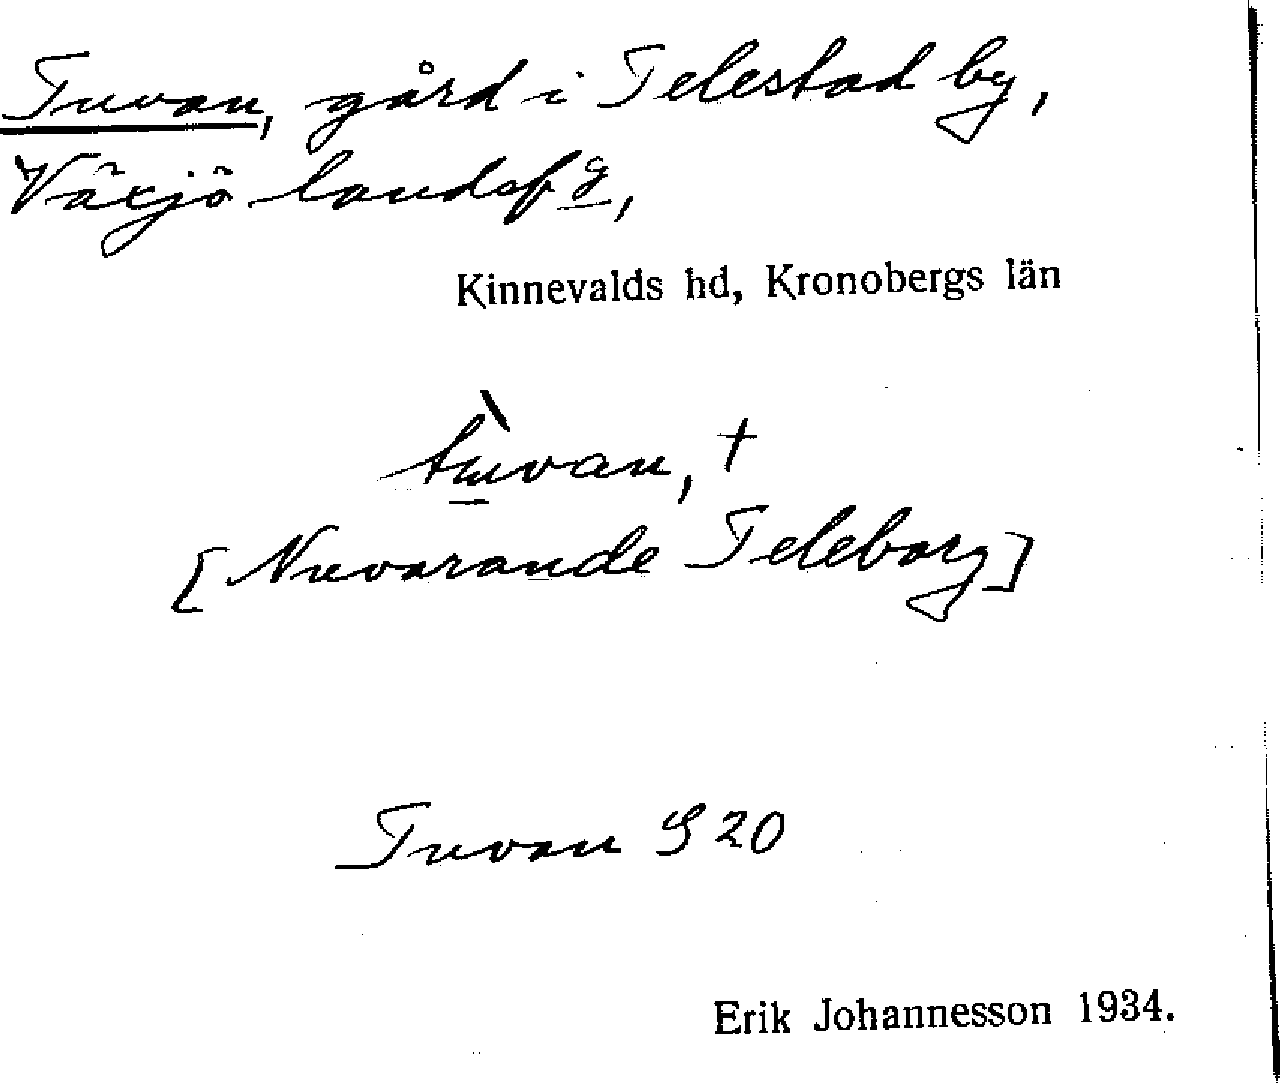 Tuvan, gård i Telestad by,
Växjö landsfg,
Kinnevalds hd, Kronobergs län
tùvan, †
[Nuvarande Teleborg]
Tuvan S 20
Erik Johannesson 1934.